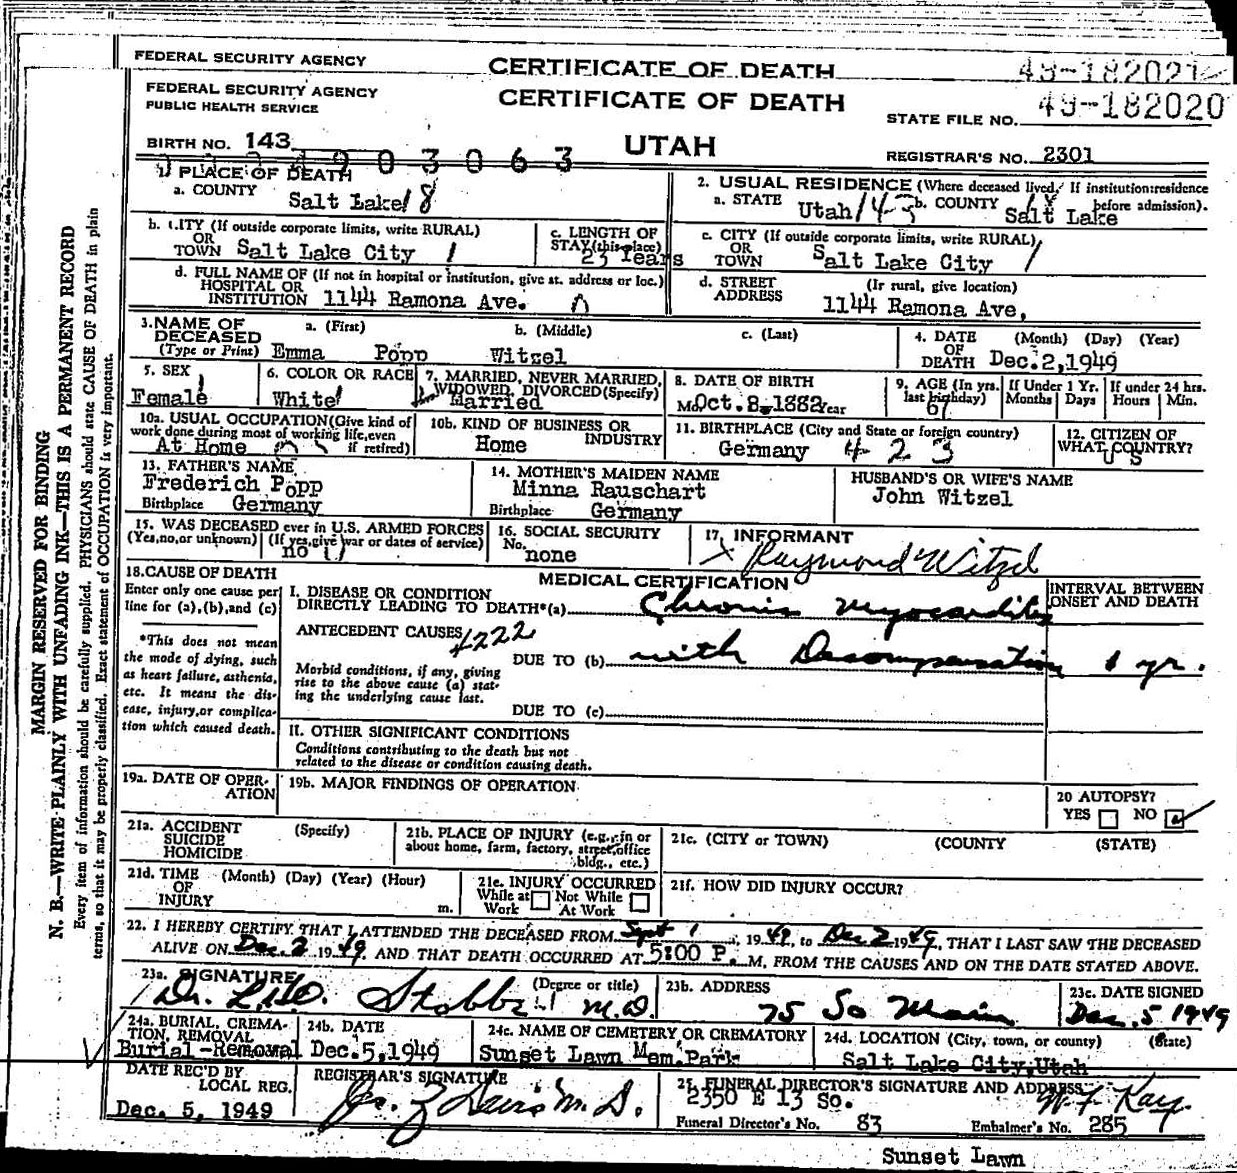 FEDERAL SECURITY AGENCY CERTIFICATE OF DEATH 49-182021
FEDERAL SECURITY AGENCY CERTIFICATE OF DEATH 49-182020
PUBLIC HEALTH SERVICE STATE FILE NO.
BIRTH NO. 143 UTAH REGISTRAR'S NO. 2301
903063
1. PLACE OF DEATH
a. COUNTY Salt Lake 18
2. USUAL RESIDENCE (Where deceased lived. If institution:residence before admission).
a. STATE Utah b. COUNTY Salt Lake
b. CITY (If outside corporate limits, write RURAL)
OR
TOWN Salt Lake City
c. LENGTH OF
STAY (this place)
23 Years
c. CITY (If outside corporate limits, write RURAL)
OR
TOWN Salt Lake City
d. FULL NAME OF (If not in hospital or institution, give st. address or loc.)
HOSPITAL OR
INSTITUTION 1144 Ramona Ave.
d. STREET (If rural, give location)
ADDRESS 1144 Ramona Ave,
3. NAME OF a. (First) b. (Middle) c. (Last)
DECEASED
(Type or Print) Emma Popp Witzel
4. DATE (Month) (Day) (Year)
OF
DEATH Dec. 2, 1949
5. SEX
Female
6. COLOR OR RACE
White
7. MARRIED, NEVER MARRIED,
WIDOWED, DIVORCED (Specify)
Married
8. DATE OF BIRTH
Mo Oct. 8, 1882 Year
9. AGE (In yrs. last birthday)
67
If Under 1 Yr.
Months Days
If under 24 hrs.
Hours Min.
10a. USUAL OCCUPATION (Give kind of
work done during most of working life, even
if retired)
At Home
10b. KIND OF BUSINESS OR
INDUSTRY
Home
11. BIRTHPLACE (City and State or foreign country)
Germany 4 2 3
12. CITIZEN OF
WHAT COUNTRY?
U S
13. FATHER'S NAME
Frederich Popp
Birthplace Germany
14. MOTHER'S MAIDEN NAME
Minna Rauschart
Birthplace Germany
HUSBAND'S OR WIFE'S NAME
John Witzel
15. WAS DECEASED ever in U.S. ARMED FORCES
(Yes, no, or unknown) (If yes, give war or dates of service)
no
16. SOCIAL SECURITY
No.
none
17. INFORMANT
X Raymond Witzel
18. CAUSE OF DEATH
Enter only one cause per
line for (a), (b), and (c)
*This does not mean
the mode of dying, such
as heart failure, asthenia,
etc. It means the dis-
ease, injury, or complica-
tion which caused death.
MEDICAL CERTIFICATION
INTERVAL BETWEEN
ONSET AND DEATH
I. DISEASE OR CONDITION
DIRECTLY LEADING TO DEATH*(a) Chronic myocarditis
ANTECEDENT CAUSES 4222
DUE TO (b) with Decompensation 1 yr.
Morbid conditions, if any, giving
rise to the above cause (a) stat-
ing the underlying cause last.
DUE TO (c)
II. OTHER SIGNIFICANT CONDITIONS
Conditions contributing to the death but not
related to the disease or condition causing death.
19a. DATE OF OPER-
ATION
19b. MAJOR FINDINGS OF OPERATION
20 AUTOPSY?
YES NO
21a. ACCIDENT (Specify)
SUICIDE
HOMICIDE
21b. PLACE OF INJURY (e.g., in or
about home, farm, factory, street, office
bldg., etc.)
21c. (CITY or TOWN) (COUNTY) (STATE)
21d. TIME (Month) (Day) (Year) (Hour)
OF
INJURY m.
21e. INJURY OCCURRED
While at Work Not While At Work
21f. HOW DID INJURY OCCUR?
22. I HEREBY CERTIFY THAT I ATTENDED THE DECEASED FROM Sept 1, 1949, to Dec 2 1949, THAT I LAST SAW THE DECEASED
ALIVE ON Dec. 2 1949. AND THAT DEATH OCCURRED AT 5:00 P. M, FROM THE CAUSES AND ON THE DATE STATED ABOVE.
23a. SIGNATURE (Degree or title)
Dr. M.D.
23b. ADDRESS
75 So Main
23c. DATE SIGNED
Dec. 5 1949
24a. BURIAL, CREMA-
TION, REMOVAL
Burial-Removal
24b. DATE
Dec. 5, 1949
24c. NAME OF CEMETERY OR CREMATORY
Sunset Lawn Mem. Park
24d. LOCATION (City, town, or county) (State)
Salt Lake City, Utah
DATE REC'D BY
LOCAL REG.
Dec. 5, 1949
REGISTRAR'S SIGNATURE
M.D.
25. FUNERAL DIRECTOR'S SIGNATURE AND ADDRESS
2350 E 13 So. Kay
Funeral Director's No. 83 Embalmer's No. 285
Sunset Lawn
MARGIN RESERVED FOR BINDING
N. B.—WRITE PLAINLY WITH UNFADING INK—THIS IS A PERMANENT RECORD
Every item of information should be carefully supplied. PHYSICIANS should state CAUSE OF DEATH in plain
terms, so that it may be properly classified. Exact statement of OCCUPATION is very important.